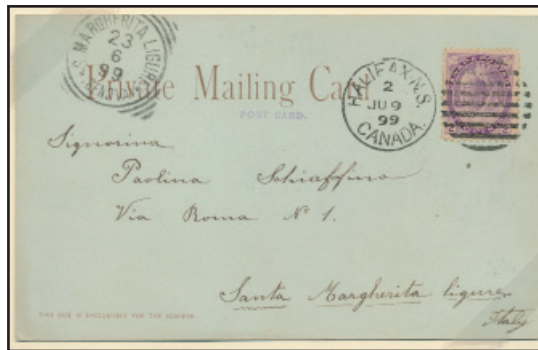 S. MARGHERITA LIGURE
23
6
99
Private Mailing Card
POST CARD.
HALIFAX-N.S.
2
JU 9
99
CANADA.
Signorina
Paolina Schiaffino
Via Roma Nº 1.
Santa Margherita ligure
Italy
THIS SIDE IS EXCLUSIVELY FOR THE ADDRESS.